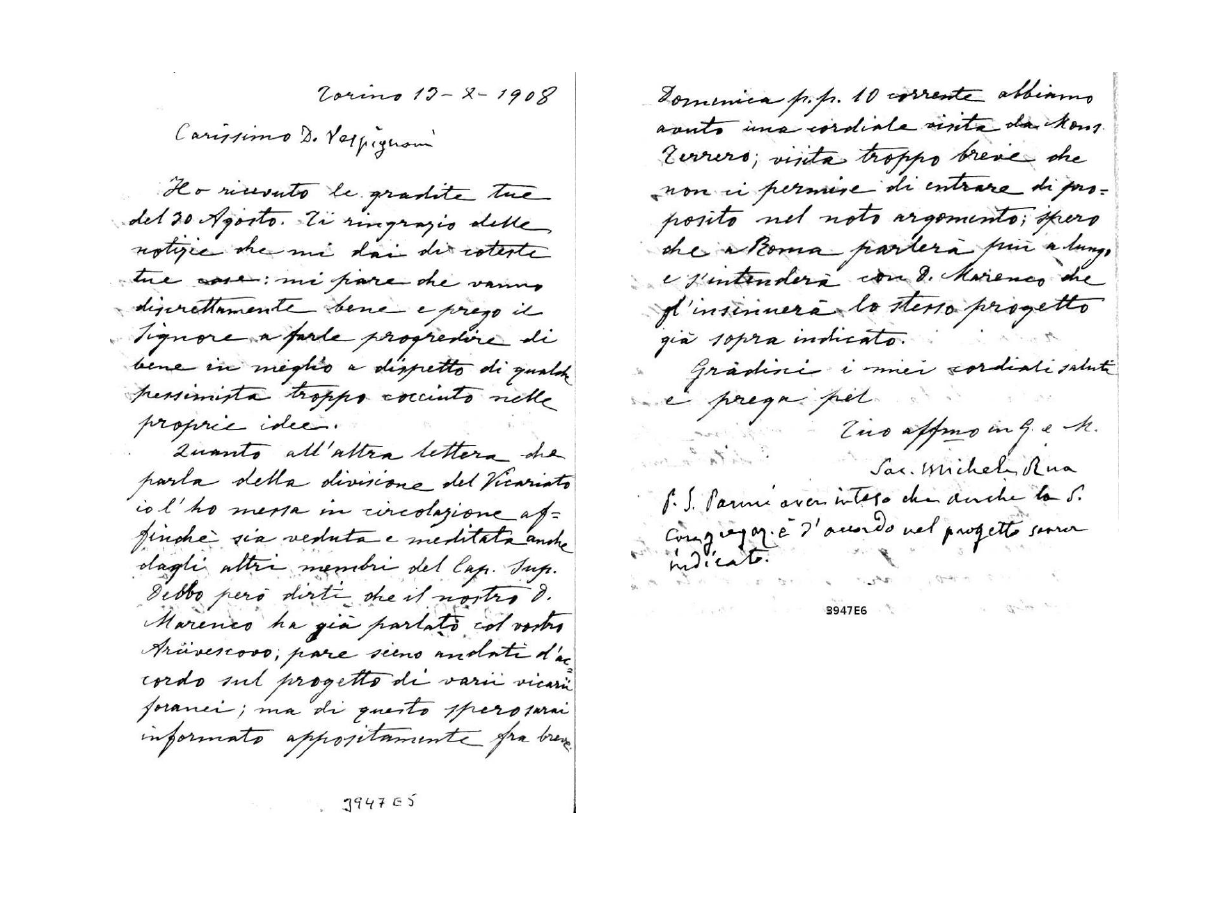 Torino 13-X-1908
Carissimo D. Vespignani
Ho ricevuto le gradite tue
del 30 Agosto. Ti ringrazio delle
notizie che mi dai di coteste
tue case: mi pare che vanno
discrettamente bene e prego il
Signore a farle progredire di
bene in meglio a dispetto di qualche
pessimista troppo cocciuto nelle
proprie idee.
Quanto all'altra lettera che
parla della divisione del Vicariato
io l'ho messa in circolazione af=
finchè sia veduta e meditata anche
dagli altri membri del Cap. Sup.
Debbo però dirti che il nostro D.
Marenco ha già parlato col vostro
Arcivescovo; pare sieno andati d'ac=
cordo sul progetto di varii vicarii
foranei; ma di questo spero sarai
informato appositamente fra breve.
3947E5
Domenica p.p. 10 corrente abbiamo
avuto una cordiale visita da Mons.
Terrero; visita troppo breve che
non ci permise di entrare di pro=
posito nel noto argomento; spero
che a Roma parlerà più a lungo
e s'intenderà con D. Marenco che
gl'insinuerà lo stesso progetto
già sopra indicato.
Gradisci i miei cordiali saluti
e prega pel
Tuo affmo in G. e M.
Sac. Michele Rua
P. S. aver inteso che anche la S.
Congregaz. è d'accordo nel progetto sovra
indicato.
3947E6